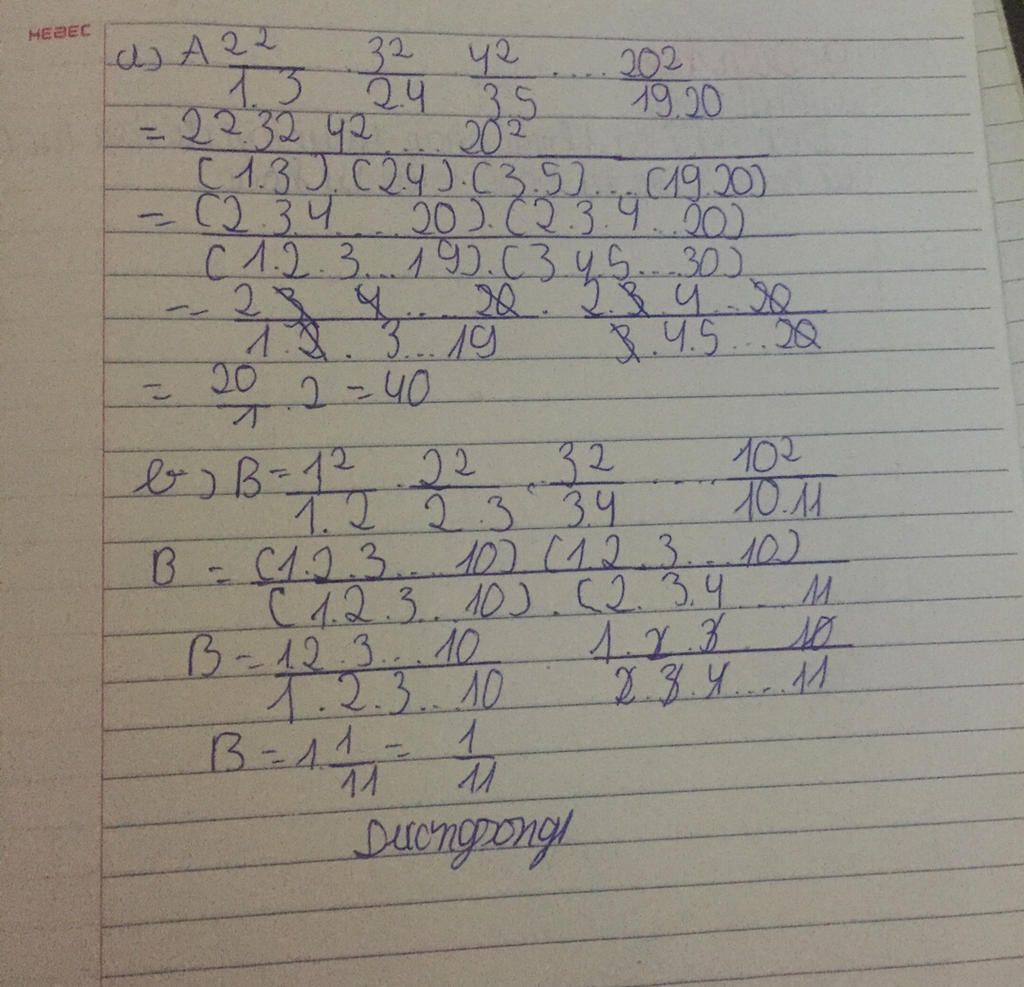 HEBEC
a) A 2²/1.3 . 3²/2.4 4²/3.5 .... 20²/19.20
= 2².3².4² .... 20²/(1.3).(2.4).(3.5)...(19.20)
= (2.3.4.....20).(2.3.4...20)/(1.2.3...19).(3.4.5...30)
= 2.3.4....20/1.2.3...19 . 2.3.4...20/3.4.5...20
= 20/1 . 2 = 40
b) B = 1²/1.2 . 2²/2.3 . 3²/3.4 .... 10²/10.11
B = (1.2.3...10)(1.2.3...10)/(1.2.3...10).(2.3.4...11
B = 1.2.3...10/1.2.3...10 . 1.2.3...10/2.3.4....11
B = 1.1/11 = 1/11